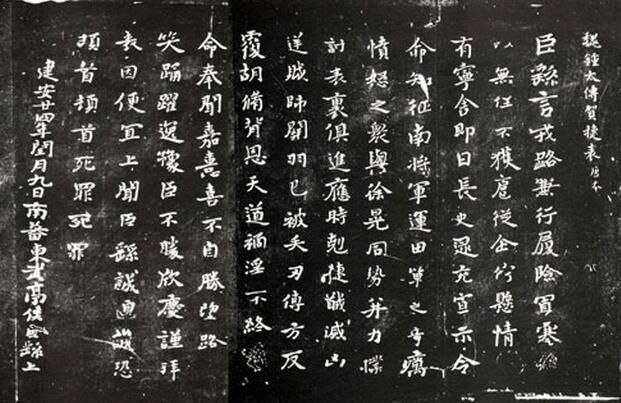 魏鍾太傅賀捷表 唐本
臣繇言戎路兼行履險冒寒臣
以無任不獲扈從企佇懸情
有寧舍即日長史逯充宣示令
命知征南將軍運田單之奇厲
憤怒之衆與徐晃同勢并力撲
討表裏俱進應時剋捷馘滅凶
逆賊帥關羽已被矢刃傅方反
覆胡脩背恩天道禍淫不終
命奉聞嘉憙喜不自勝望路
笑踊躍逸豫臣不勝欣慶謹拜
表因便宜上聞臣繇誠惶誠恐
頓首頓首死罪死罪
建安廿四年閏月九日南蕃東武亭侯臣繇上